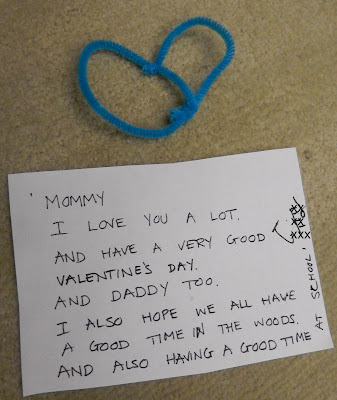 MOMMY
I LOVE YOU A LOT.
AND HAVE A VERY GOOD
VALENTINE'S DAY.
AND DADDY TOO.
I ALSO HOPE WE ALL HAVE
A GOOD TIME IN THE WOODS.
AND ALSO HAVING A GOOD TIME AT
SCHOOL.